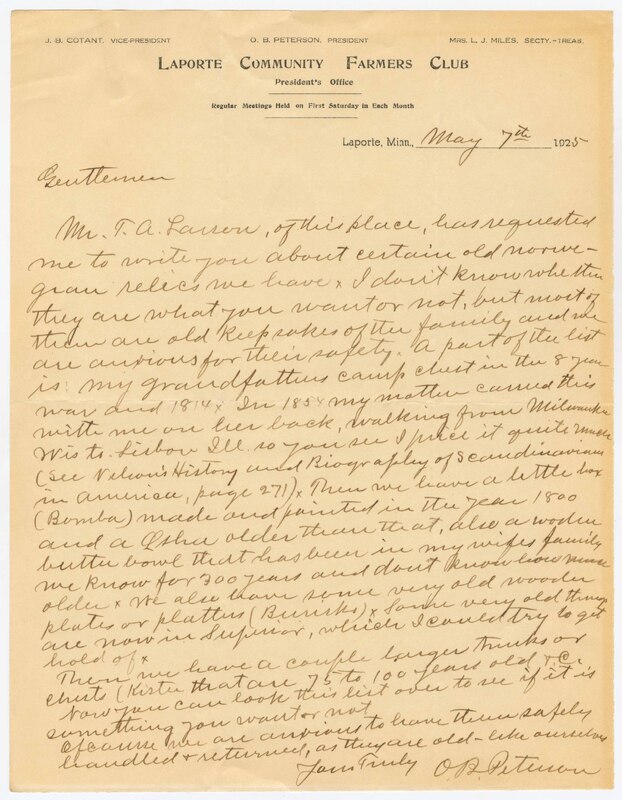 J. B. COTANT, VICE-PRESIDENT
O. B. PETERSON, PRESIDENT
MRS. L. J. MILES, SECTY.-TREAS.
LAPORTE COMMUNITY FARMERS CLUB
President's Office
Regular Meetings Held on First Saturday in Each Month
Laporte, Minn., May 7th 1925
Gentlemen
Mr. T. A. Larson, of this place, has requested
me to write you about certain old norwe-
gian relics we have x I don't know whether
they are what you want or not, but most of
them are old keepsakes of the family and we
are anxious for their safety. A part of the list
is: my grandfathers camp chest in the 8 year
war and 1814 x In 1854 my mother carried this
with me on her back, walking from Milwaukee
Wis to Lisbon Ill. so you see I price it quite much
(See Nelson's History and Biography of Scandinavians
in America, page 271) x Then we have a little box
(Bomba) made and painted in the year 1800
and a older than that, also a woden
butter bowl that has been in my wifes family
we know for 300 years and dont know how much
older x We also have some very old wooden
plates or platters x Some very old things
are now in Superior, which I could try to get
hold of x
Then we have a couple larger trunks or
chests (Kister that are 75 to 100 years old
Now you can look this list over to see if it is
something you want or not
Ofcourse we are anxious to have them safely
handled & returned, as they are old-like ourselves
Yours Truly O. B. Peterson